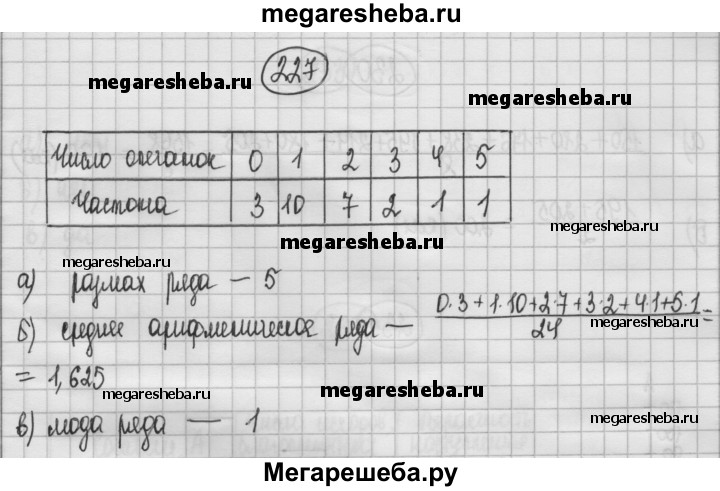 megaresheba.ru
227
megaresheba.ru
megaresheba.ru
Число опечаток 0 1 2 3 4 5
Частота 3 10 7 2 1 1
megaresheba.ru
megaresheba.ru
а) размах ряда — 5
б) среднее арифметическое ряда — 0·3+1·10+2·7+3·2+4·1+5·1 / 24 =
megaresheba.ru
= 1,625
megaresheba.ru
megaresheba.ru
megaresheba.ru
в) мода ряда — 1
Мегарешеба.ру